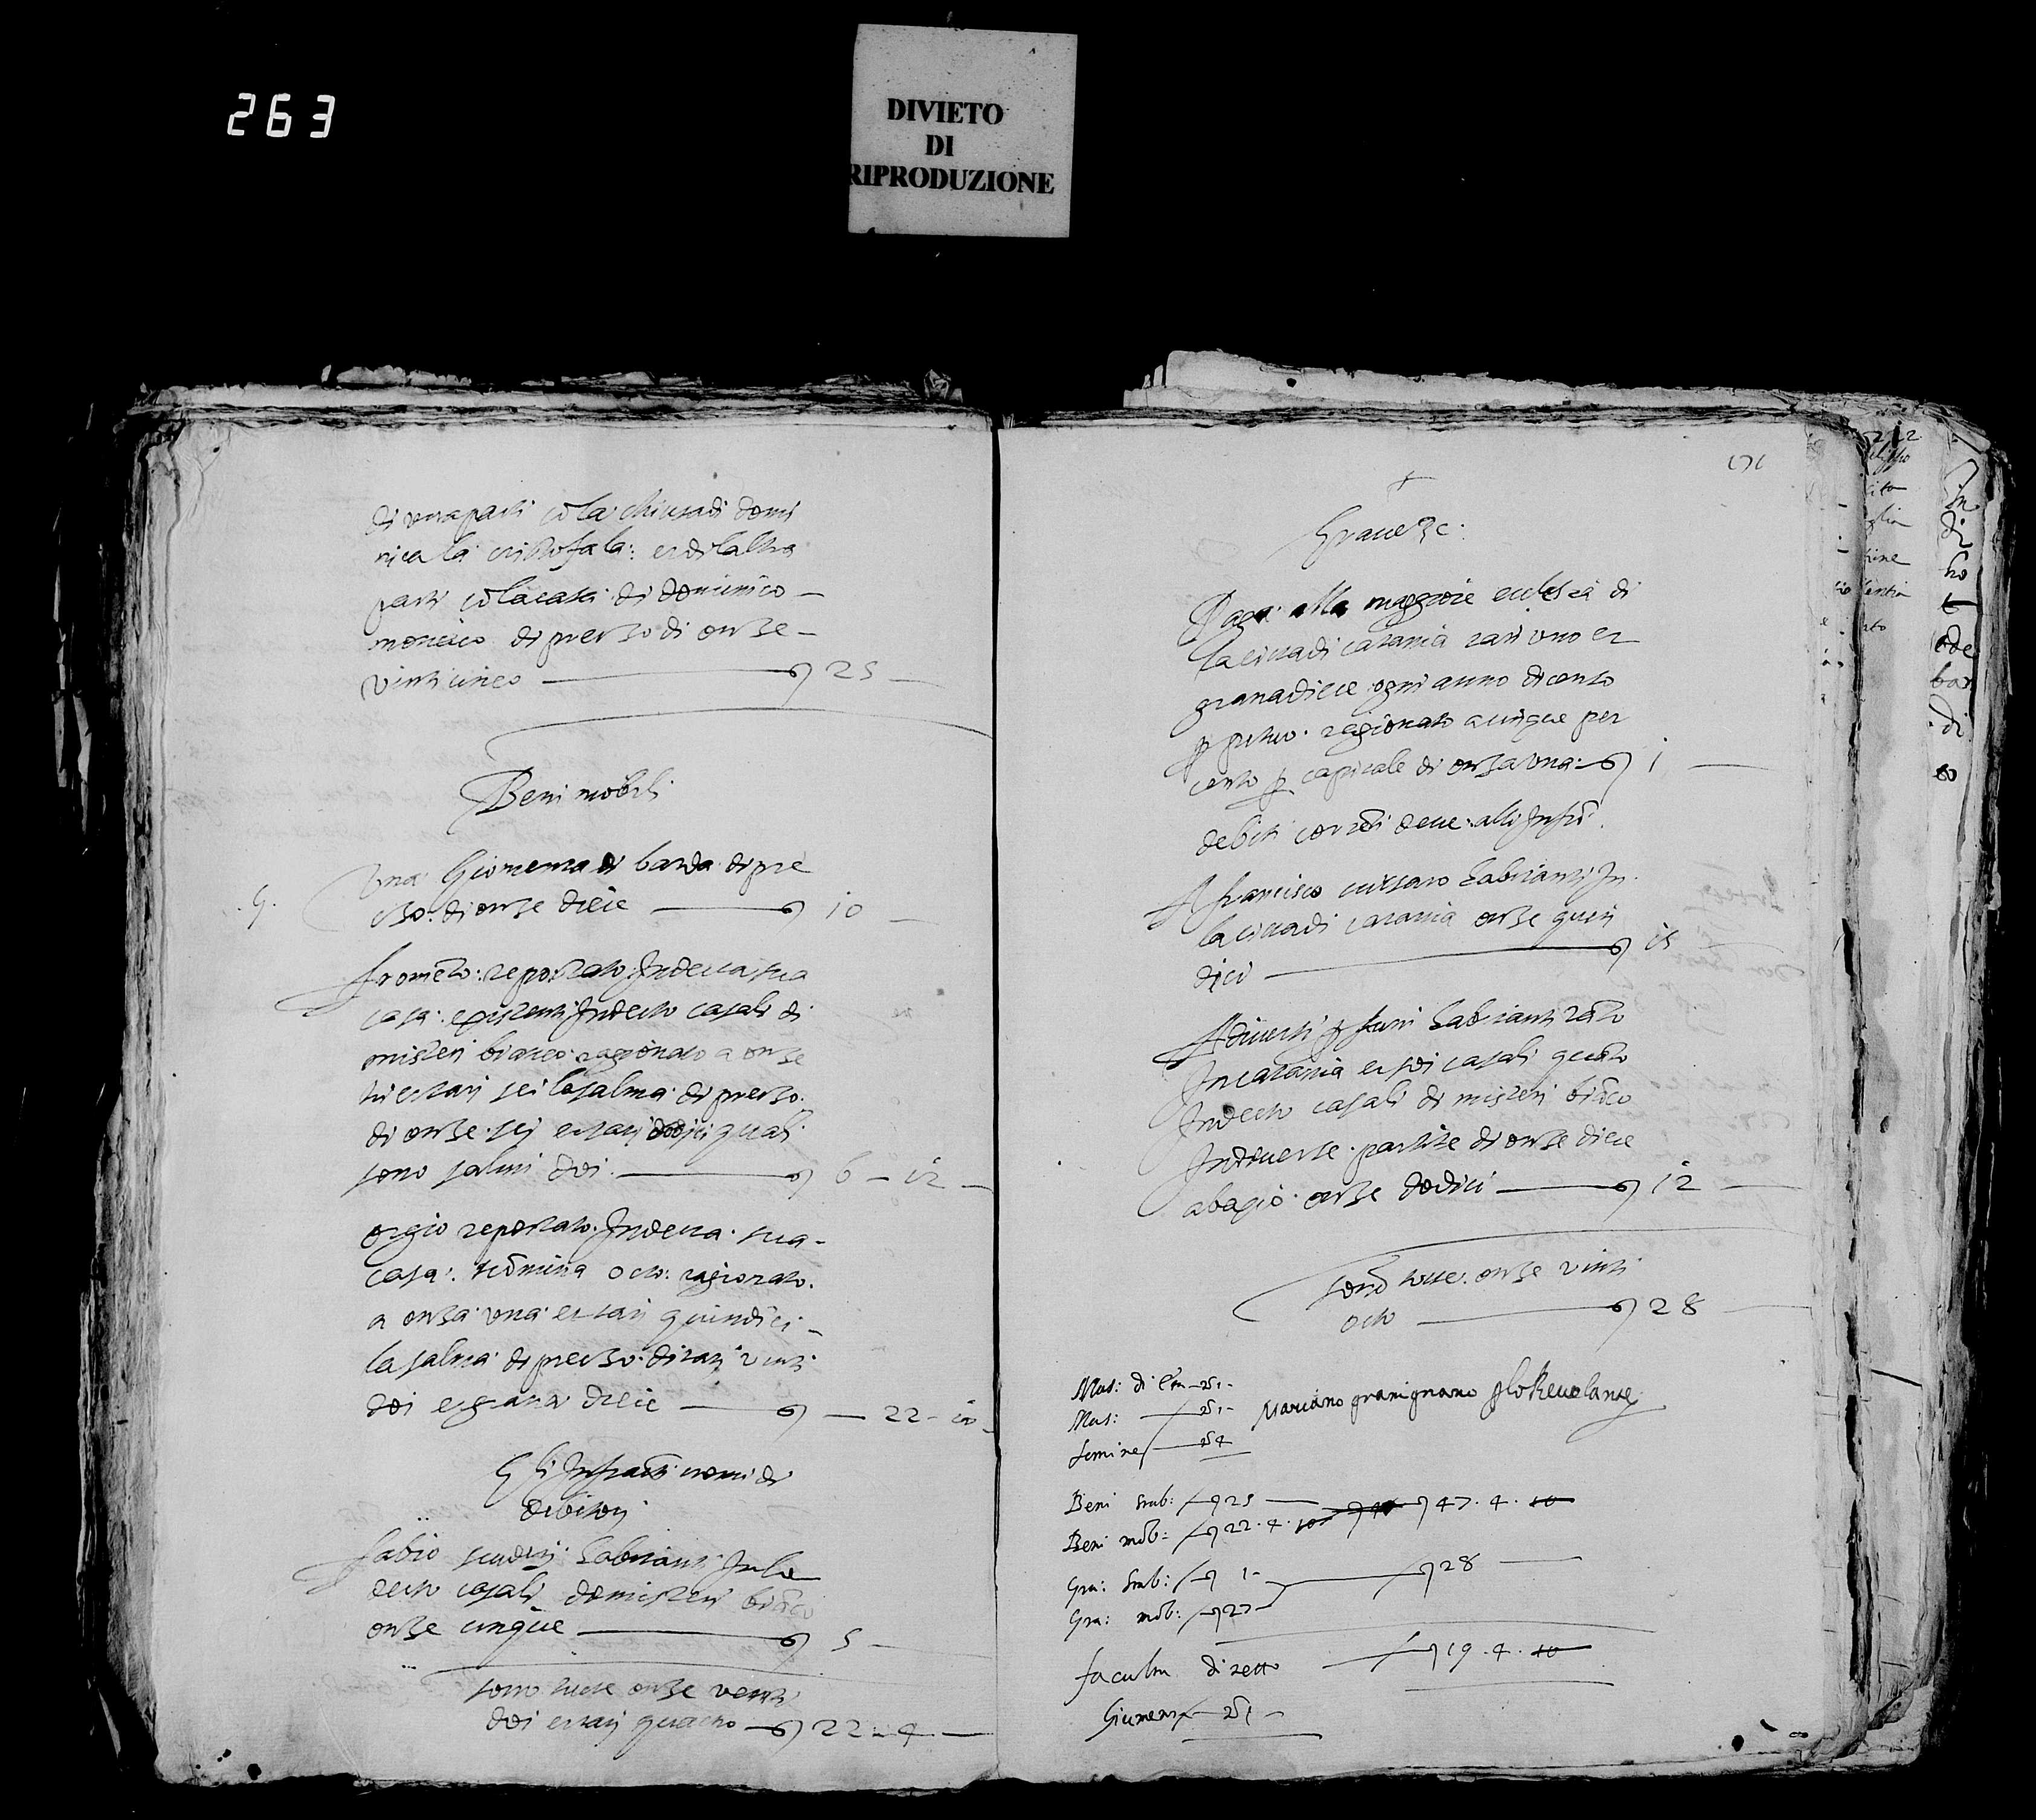 263
DIVIETO
DI
RIPRODUZIONE
di una parti cõ la chiusa di domi
nica la cristofala: et di laltra
parti cõ la casa di dominico
di prezzo di onze
vinticinco 25
Beni mobili
.G.
Una Giomenta di barda di pre
czo: di onze diece 10
fromẽto: repostato: In detta sua
casa: existenti In detto casali di
misteri bianco ragionato a onze
tri et tari sei la salma di prezzo
di onze sei et tari dodici quali
sono salmi doi 6 - 12
orgio repostato. In detta sua
casa: tũmina octo: ragionato.
a onza una et tari quindici
la salma di prezzo di tari vinti
doi et grana diece 22 - 10
Gli Infratti nomi di
dibitori
fabio habitanti In lo
detto casali di misteri biãco
onze cinque 5
sono tutte onze venti
doi et tari quattro 22 - 4
191
+
Gravezze:
Paga alla maggiore ecclesia di
la citta di catania tari uno et
grana diece ogni anno di censo
ppetuo. ragionato a cinque per
cento p capitale di onza una 1
debiti correti deve alli Infrti.
A francisco habitanti In
la citta di catania onze quin
dici 15
A diversi psuni habitanti tãto
In catania et soi casali quãto
In detto casali di misteri biãco
In diverse partite di onze diece
abagio onze dodici 12
sonó tutte onze vinti
octo 28
Mas: di Etá nº 1
Mas: nº 1
femine nº 4
Mariano gravignano p lo Revelante
Beni stab: 25
Beni mób: 22.4.10 47.4.10
Gra: stab: 1
Gra: mób: 27 28
facultá di netto 19.4.10
Giument nº 1